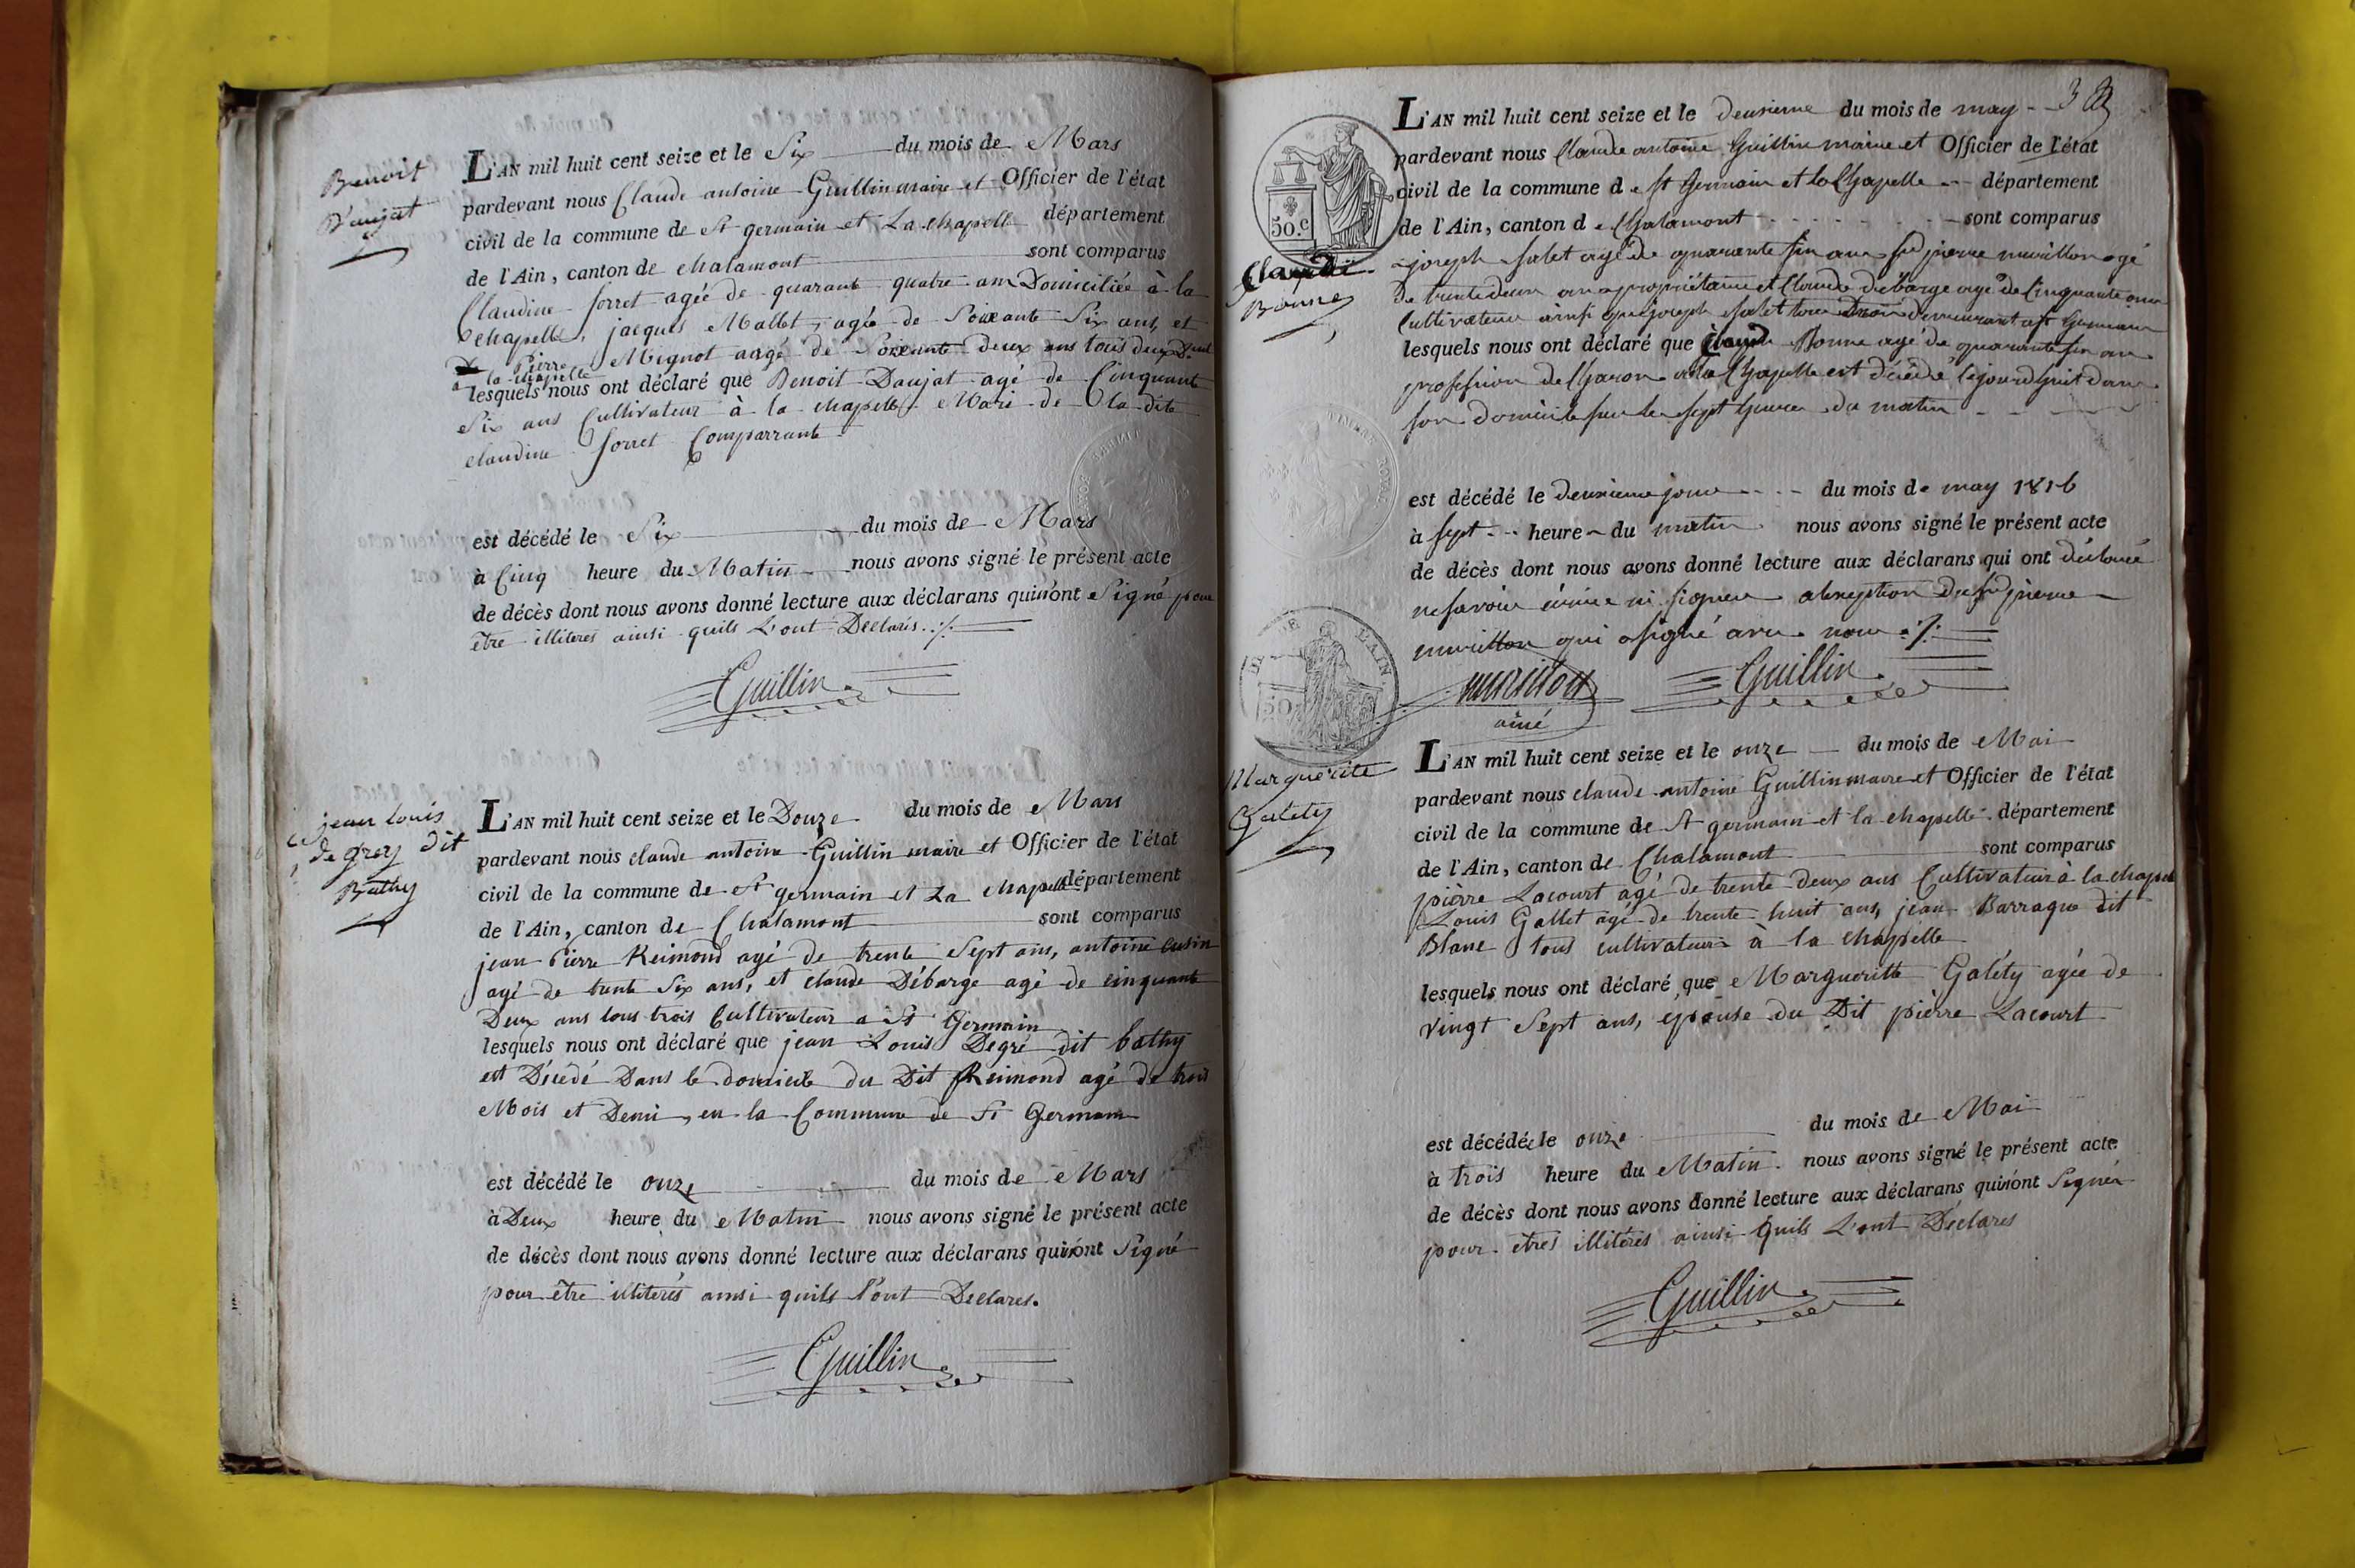 Benoit
Daujat
L'AN mil huit cent seize et le Six du mois de Mars
pardevant nous Claude antoine Guillin maire et Officier de l'état
civil de la commune de St germain et La chapelle département
de l'Ain, canton de chalamont sont comparus
Claudine forret agée de quarante quatre an Domiciliée à la
chapelle, jacques Mallet, agée de Soixante Six ans, et
Pierre Mignot aagé de Soixante deux ans tous deux
à la chapelle
lesquels nous ont déclaré que Benoit Daujat agé de Cinquante
Six ans Cultivateur à la chapelle Mari de la dite
claudine forret Comparrante
est décédé le Six du mois de Mars
à Cinq heure du Matin nous avons signé le présent acte
de décès dont nous avons donné lecture aux déclarans qui n'ont Signé pour
être illiteres ainsi quils L'ont Declarés ./.
Guillin
jean Louis
de grey dit
Bathy
L'AN mil huit cent seize et le Douze du mois de Mars
pardevant nous claude antoine Guillin maire et Officier de l'état
civil de la commune de St germain et La chapelle département
de l'Ain, canton de Chalamont sont comparus
jean Pierre Reimond agé de trente Sept ans, antoine cusin
agé de trente Six ans, et claude Débarge agé de cinquante
Deux ans tous trois Cultivateur a St Germain
lesquels nous ont déclaré que jean Louis Degré dit bathy
est Décédé Dans le domicile du Dit Reimond agé de trois
Mois et Demi, en la Commune de St Germain
est décédé le onze du mois de Mars
à Deux heure du Matin nous avons signé le présent acte
de décès dont nous avons donné lecture aux déclarans qui n'ont Signé
pour être illiterés ainsi quils l'ont Declarés.
Guillin
3
L'AN mil huit cent seize et le deuxieme du mois de may
pardevant nous Claude antoine Guillin maire et Officier de l'état
civil de la commune de St Germain et la Chapelle département
de l'Ain, canton de Chalamont sont comparus
50.c
Claude
Bonne
joseph falet agé de quarante sin ans sr pierre murillon agé
de trente deux an propriétaire et Claude débarge agé de Cinquante
Cultivateur ainsi que joseph falet tous demeurant a st Germain
lesquels nous ont déclaré que Claude Bonne agé de quarante sin an
profession de Charon a la Chapelle est décédé cejourdhuit dans
son domicile sur les sept heures du matin
est décédé le deuxieme jour du mois de may 1816
à sept heure du matin nous avons signé le présent acte
de décès dont nous avons donné lecture aux déclarans qui ont déclaré
ne savoir écrire ni signer a lexeption du sr pierre
murillon qui a signé avec nous ./.
DE L'AIN.
50
murillon
ainé
Guillin
Marguerite
Galety
L'AN mil huit cent seize et le onze du mois de Mai
pardevant nous claude antoine Guillin maire et Officier de l'état
civil de la commune de St germain et la chapelle département
de l'Ain, canton de Chalamont sont comparus
pièrre Lacourt agé de trente deux ans Cultivateur à la chapel
Louis Gallet agé de trente huit ans, jean Barraque dit
Blanc tous cultivateurs à la chapelle
lesquels nous ont déclaré que Margueritte Galéty agée de
vingt Sept ans, épouse du Dit pièrre Lacourt
est décédée le onze du mois de Mai
à trois heure du Matin nous avons signé le présent acte
de décès dont nous avons donné lecture aux déclarans qui n'ont Signés
pour êtres illiterés ainsi quils L'ont Declares
Guillin